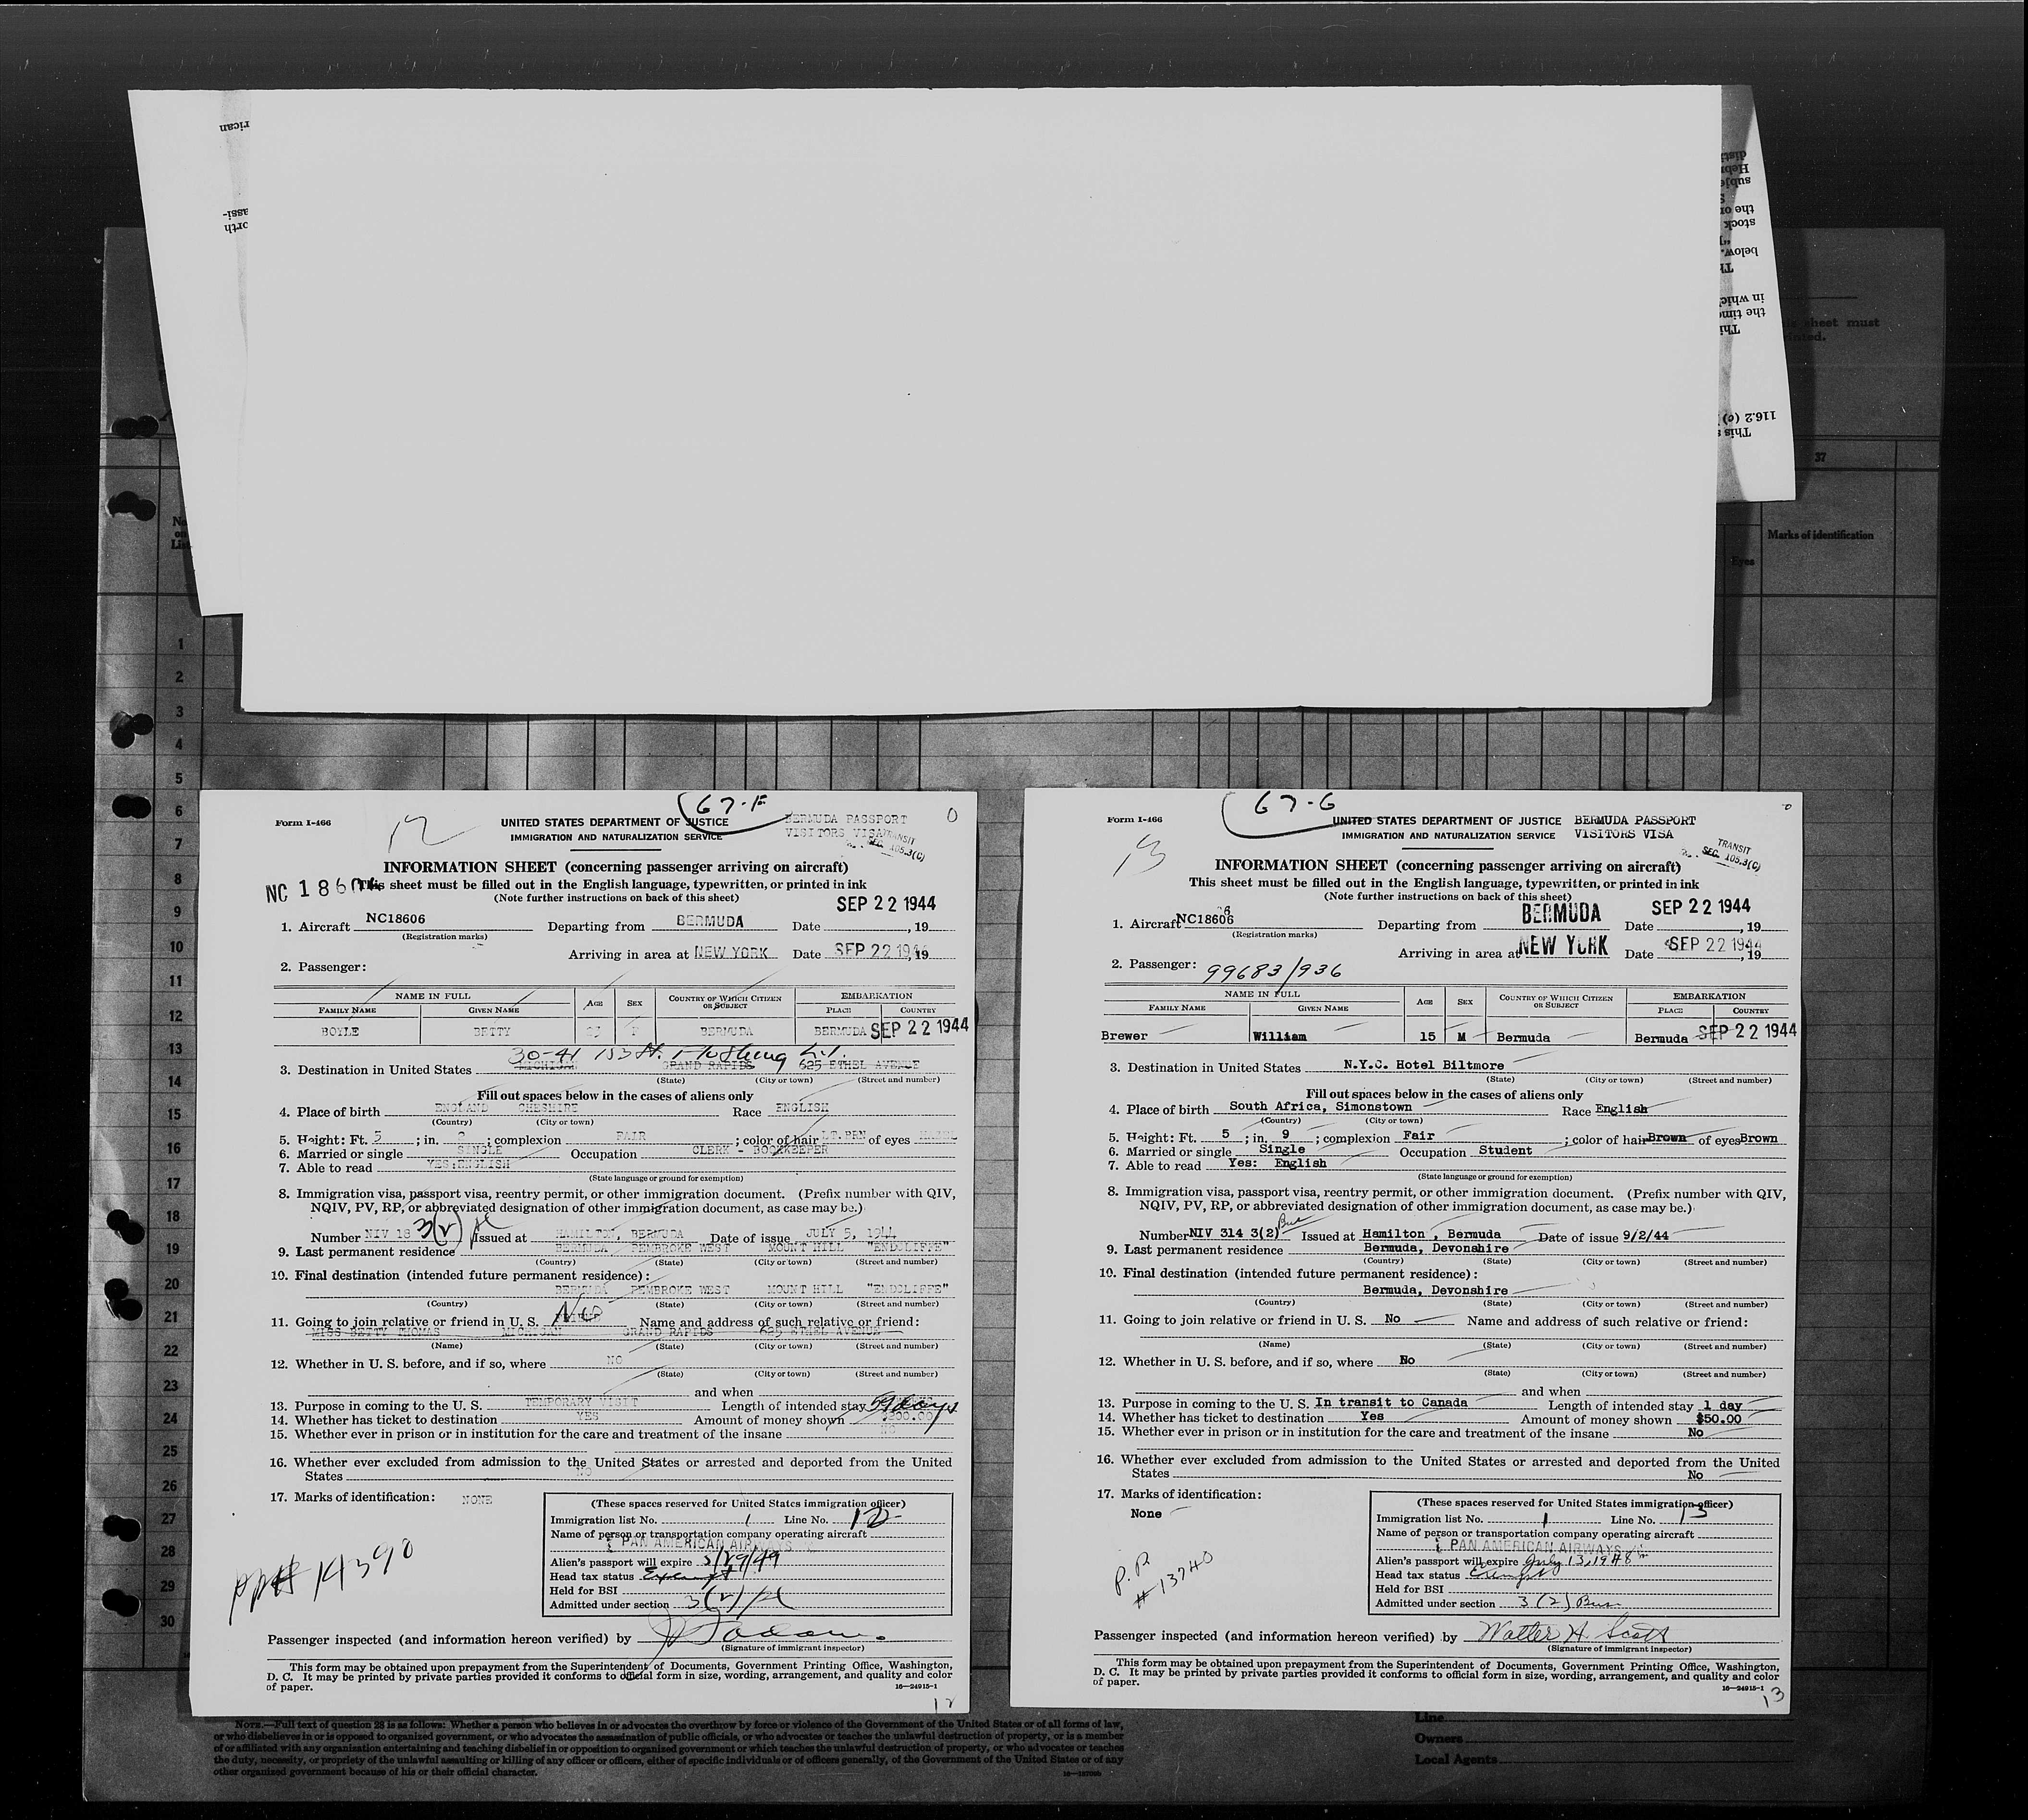 rican
assi-
orth
disti
Hebr
subje
the or
stock
below.
Th
in which
the time
This
116.2 (c)
This s
sheet must
37
No
on
List
Marks of identification
Eyes
1
2
3
4
5
6
7
8
9
10
11
12
13
14
15
16
17
18
19
20
21
22
23
24
25
26
27
28
29
30
67-F
Form I-466
12
UNITED STATES DEPARTMENT OF JUSTICE
IMMIGRATION AND NATURALIZATION SERVICE
BERMUDA PASSPORT
VISITORS VISA
TRANSIT
SEC. 105.3(C)
0
INFORMATION SHEET (concerning passenger arriving on aircraft)
NC 1860
This sheet must be filled out in the English language, typewritten, or printed in ink
(Note further instructions on back of this sheet)
SEP 22 1944
1. Aircraft NC18606 Departing from BERMUDA Date , 19
(Registration marks)
Arriving in area at NEW YORK Date SEP 22 1944, 19
2. Passenger:
NAME IN FULL AGE SEX COUNTRY OF WHICH CITIZEN OR SUBJECT EMBARKATION
FAMILY NAME GIVEN NAME PLACE COUNTRY
BOYLE BETTY F BERMUDA BERMUDA SEP 22 1944
30-41 153 St. Flushing L.I.
3. Destination in United States MICHIGAN GRAND RAPIDS 625 ETHEL AVENUE
(State) (City or town) (Street and number)
Fill out spaces below in the cases of aliens only
4. Place of birth ENGLAND CHESHIRE Race ENGLISH
(Country) (City or town)
5. Height: Ft. 5 ; in. ; complexion FAIR ; color of hair LT. BRN of eyes HAZEL
6. Married or single SINGLE Occupation CLERK - BOOKKEEPER
7. Able to read YES:ENGLISH
(State language or ground for exemption)
8. Immigration visa, passport visa, reentry permit, or other immigration document. (Prefix number with QIV,
NQIV, PV, RP, or abbreviated designation of other immigration document, as case may be.)
Number NIV 18 3(2) Issued at HAMILTON, BERMUDA Date of issue JULY 5, 1944
9. Last permanent residence BERMUDA PEMBROKE WEST MOUNT HILL "ENDCLIFFE"
(Country) (State) (City or town) (Street and number)
10. Final destination (intended future permanent residence):
BERMUDA PEMBROKE WEST MOUNT HILL "ENDCLIFFE"
(Country) (State) (City or town) (Street and number)
11. Going to join relative or friend in U. S. No Name and address of such relative or friend:
MISS BETTY THOMAS MICHIGAN GRAND RAPIDS 625 ETHEL AVENUE
(Name) (State) (City or town) (Street and number)
12. Whether in U. S. before, and if so, where NO
(State) (City or town) (Street and number)
and when
13. Purpose in coming to the U. S. TEMPORARY VISIT Length of intended stay 59 days
14. Whether has ticket to destination YES Amount of money shown
15. Whether ever in prison or in institution for the care and treatment of the insane NO
16. Whether ever excluded from admission to the United States or arrested and deported from the United
States NO
17. Marks of identification: NONE
(These spaces reserved for United States immigration officer)
Immigration list No. 1 Line No. 12
Name of person or transportation company operating aircraft
PAN AMERICAN AIRWAYS
Alien's passport will expire 5/29/49
Head tax status Exempt
Held for BSI
Admitted under section 3(2)
PP# 14390
Passenger inspected (and information hereon verified) by
(Signature of immigrant inspector)
This form may be obtained upon prepayment from the Superintendent of Documents, Government Printing Office, Washington,
D. C. It may be printed by private parties provided it conforms to official form in size, wording, arrangement, and quality and color
of paper.
16—24915-1
12
67-G
Form I-466
13
UNITED STATES DEPARTMENT OF JUSTICE
IMMIGRATION AND NATURALIZATION SERVICE
BERMUDA PASSPORT
VISITORS VISA
TRANSIT
SEC. 105.3(C)
INFORMATION SHEET (concerning passenger arriving on aircraft)
This sheet must be filled out in the English language, typewritten, or printed in ink
(Note further instructions on back of this sheet)
SEP 22 1944
1. Aircraft NC18606 Departing from BERMUDA Date , 19
(Registration marks)
Arriving in area at NEW YORK Date SEP 22 1944, 19
2. Passenger: 99683/936
NAME IN FULL AGE SEX COUNTRY OF WHICH CITIZEN OR SUBJECT EMBARKATION
FAMILY NAME GIVEN NAME PLACE COUNTRY
Brewer William 15 M Bermuda Bermuda SEP 22 1944
3. Destination in United States N.Y.C. Hotel Biltmore
(State) (City or town) (Street and number)
Fill out spaces below in the cases of aliens only
4. Place of birth South Africa, Simonstown Race English
(Country) (City or town)
5. Height: Ft. 5 ; in. 9 ; complexion Fair ; color of hair Brown of eyes Brown
6. Married or single Single Occupation Student
7. Able to read Yes: English
(State language or ground for exemption)
8. Immigration visa, passport visa, reentry permit, or other immigration document. (Prefix number with QIV,
NQIV, PV, RP, or abbreviated designation of other immigration document, as case may be.)
Number NIV 314 3(2) Bus Issued at Hamilton , Bermuda Date of issue 9/2/44
9. Last permanent residence Bermuda, Devonshire
(Country) (State) (City or town) (Street and number)
10. Final destination (intended future permanent residence):
Bermuda, Devonshire
(Country) (State) (City or town) (Street and number)
11. Going to join relative or friend in U. S. No Name and address of such relative or friend:
(Name) (State) (City or town) (Street and number)
12. Whether in U. S. before, and if so, where No
(State) (City or town) (Street and number)
and when
13. Purpose in coming to the U. S. In transit to Canada Length of intended stay 1 day
14. Whether has ticket to destination Yes Amount of money shown $50.00
15. Whether ever in prison or in institution for the care and treatment of the insane No
16. Whether ever excluded from admission to the United States or arrested and deported from the United
States No
17. Marks of identification:
None
(These spaces reserved for United States immigration officer)
Immigration list No. 1 Line No. 13
Name of person or transportation company operating aircraft
PAN AMERICAN AIRWAYS
Alien's passport will expire July 13, 1948
Head tax status Exempt
Held for BSI
Admitted under section 3 (2) Bus
P.P.
# 13740
Passenger inspected (and information hereon verified) by Walter H. Scott
(Signature of immigrant inspector)
This form may be obtained upon prepayment from the Superintendent of Documents, Government Printing Office, Washington,
D. C. It may be printed by private parties provided it conforms to official form in size, wording, arrangement, and quality and color
of paper.
16—24915-1
13
NOTE.—Full text of question 28 is as follows: Whether a person who believes in or advocates the overthrow by force or violence of the Government of the United States or of all forms of law,
or who disbelieves in or is opposed to organized government, or who advocates the assassination of public officials, or who advocates or teaches the unlawful destruction of property, or is a member
of or affiliated with any organization entertaining and teaching disbelief in or opposition to organized government or which teaches the unlawful destruction of property, or who advocates or teaches
the duty, necessity, or propriety of the unlawful assaulting or killing of any officer or officers, either of specific individuals or of officers generally, of the Government of the United States or of any
other organized government because of his or their official character.
Line
Owners
Local Agents